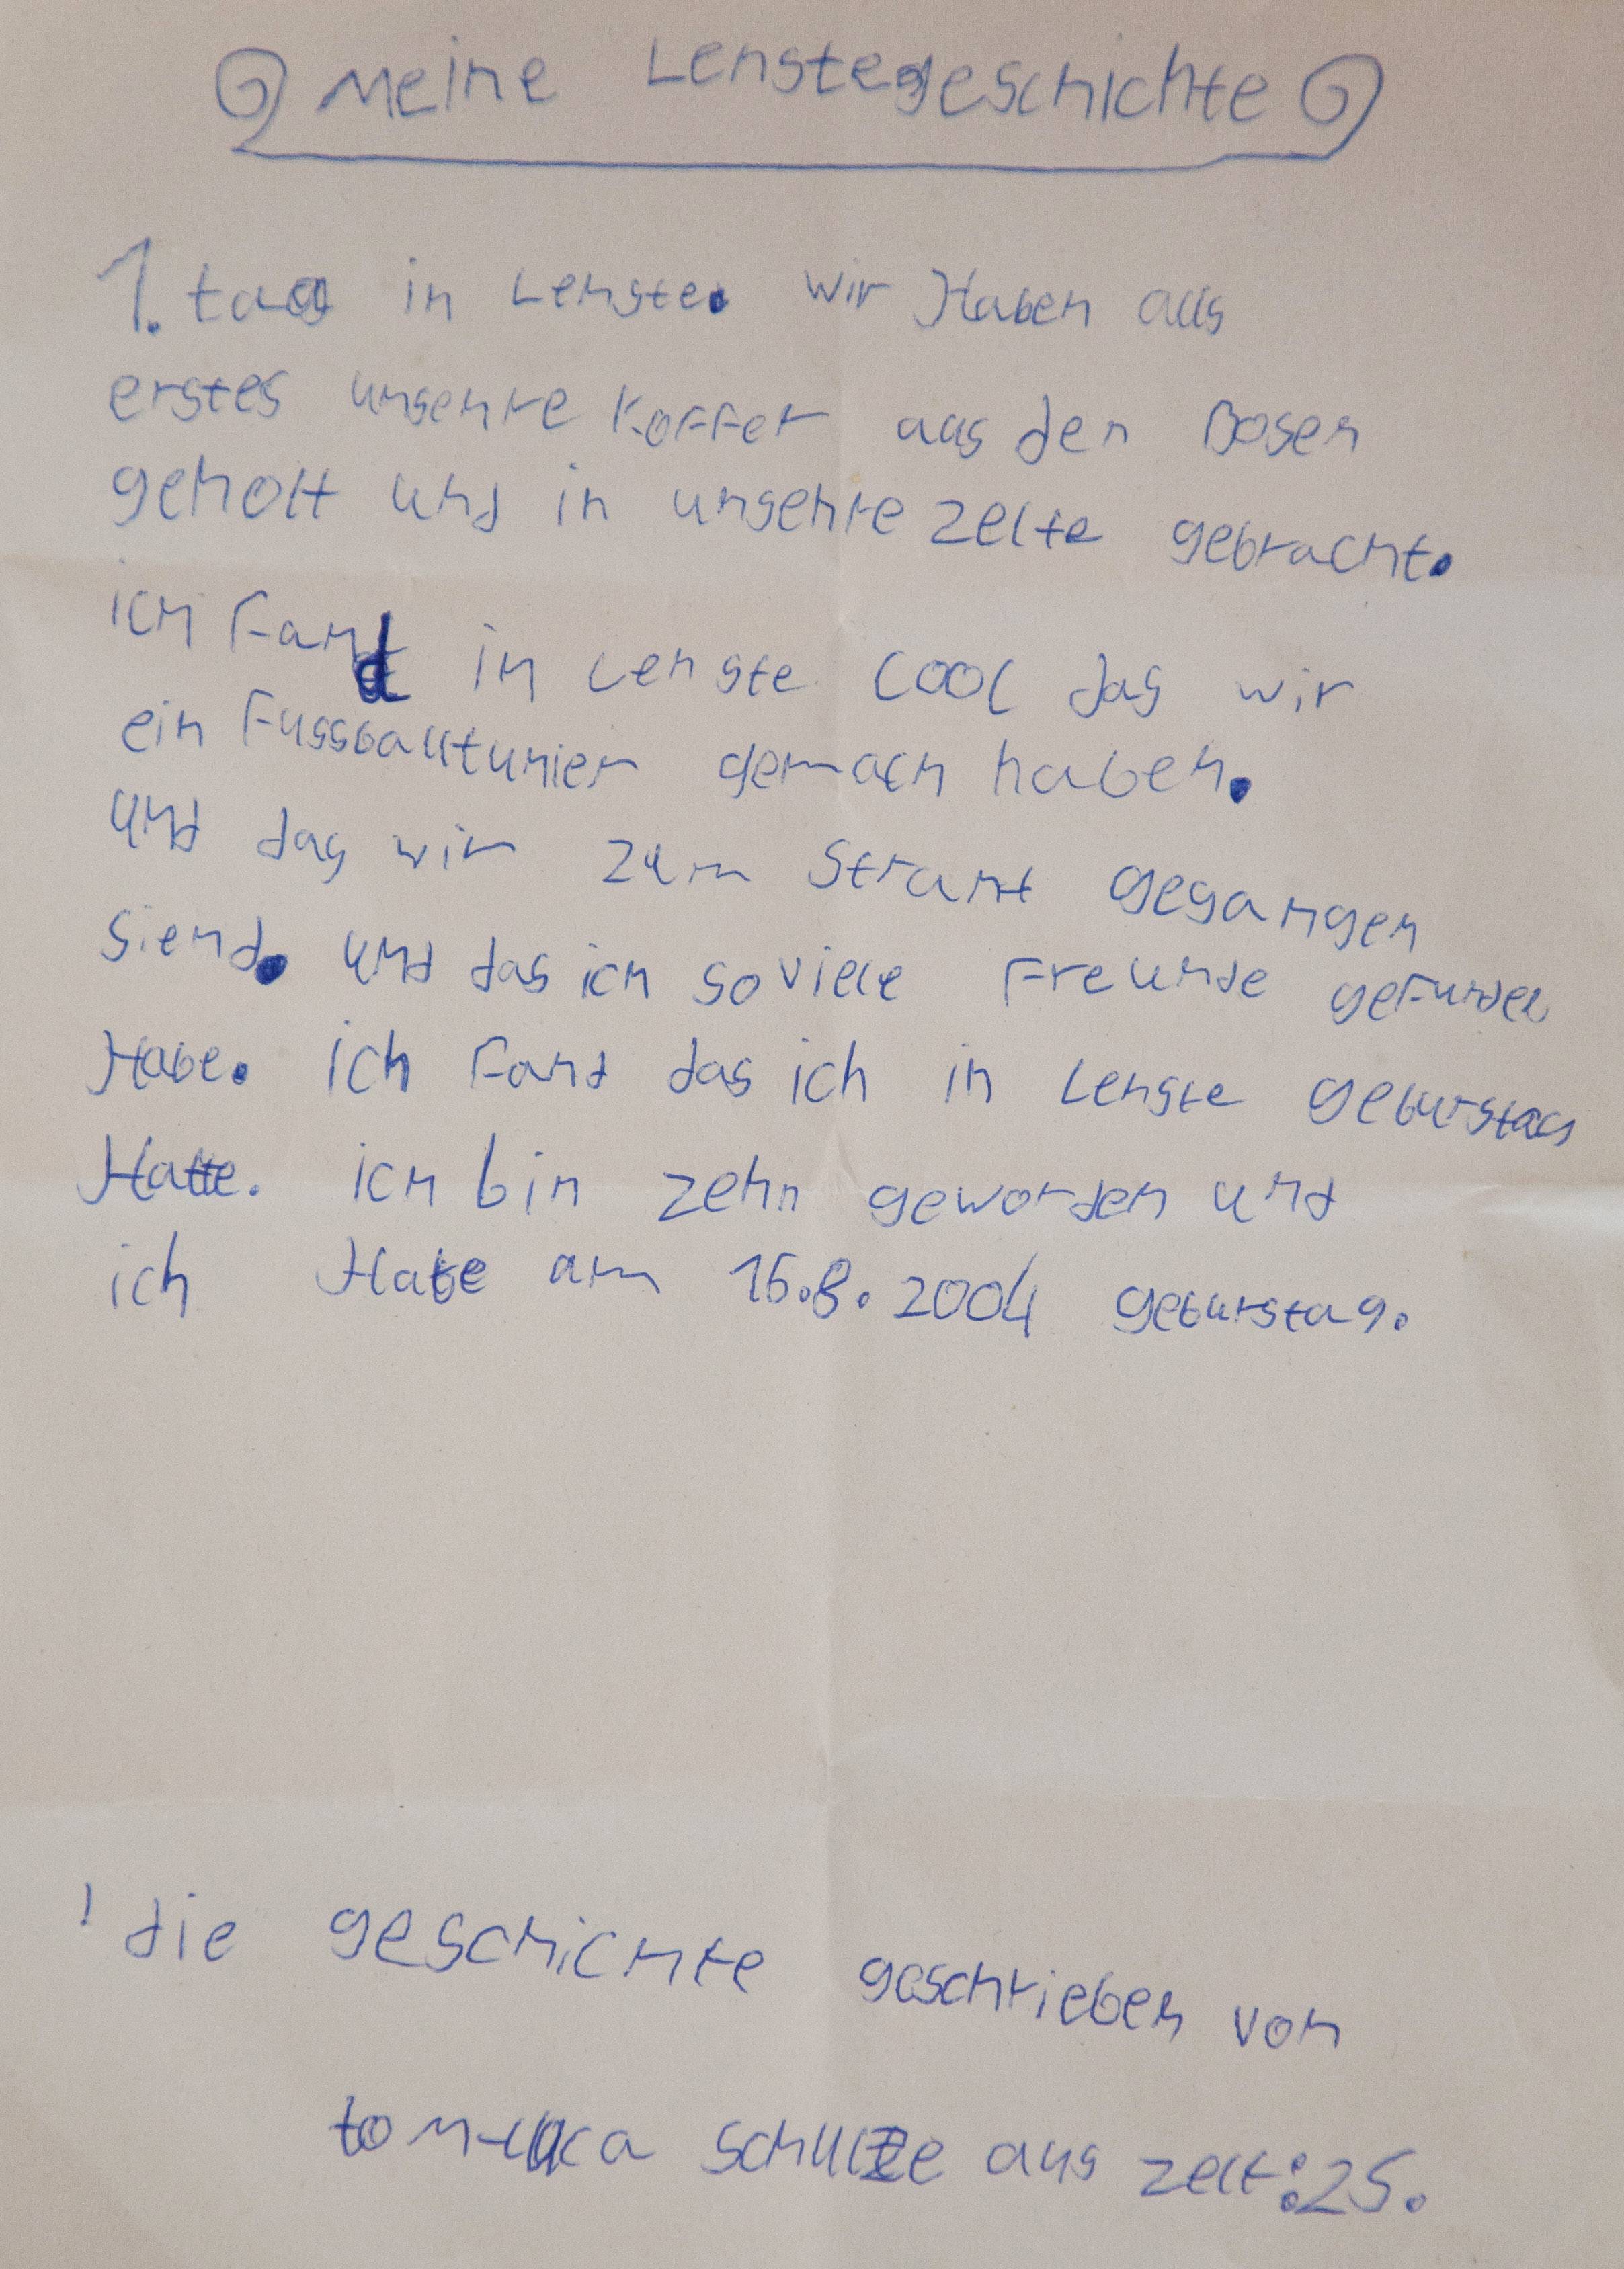 Meine Lenstegeschichte
1. tag in Lenste. wir Haben als
erstes unsehre Koffer aus den Bosen
gehollt und in unsehre zelte gebracht.
ich Fand in Lenste cool das wir
ein Fussballtunier gemach haben.
und das wir zum Strant gegangen
siend. und das ich so viele Freunde gefunden
Habe. ich Fand das ich in Lenste geburstag
Hatte. ich bin zehn geworden und
ich Habe am 16.8.2004 geburstag.
! die geschichte geschrieben von
tom-luca schulze aus zelt:25.